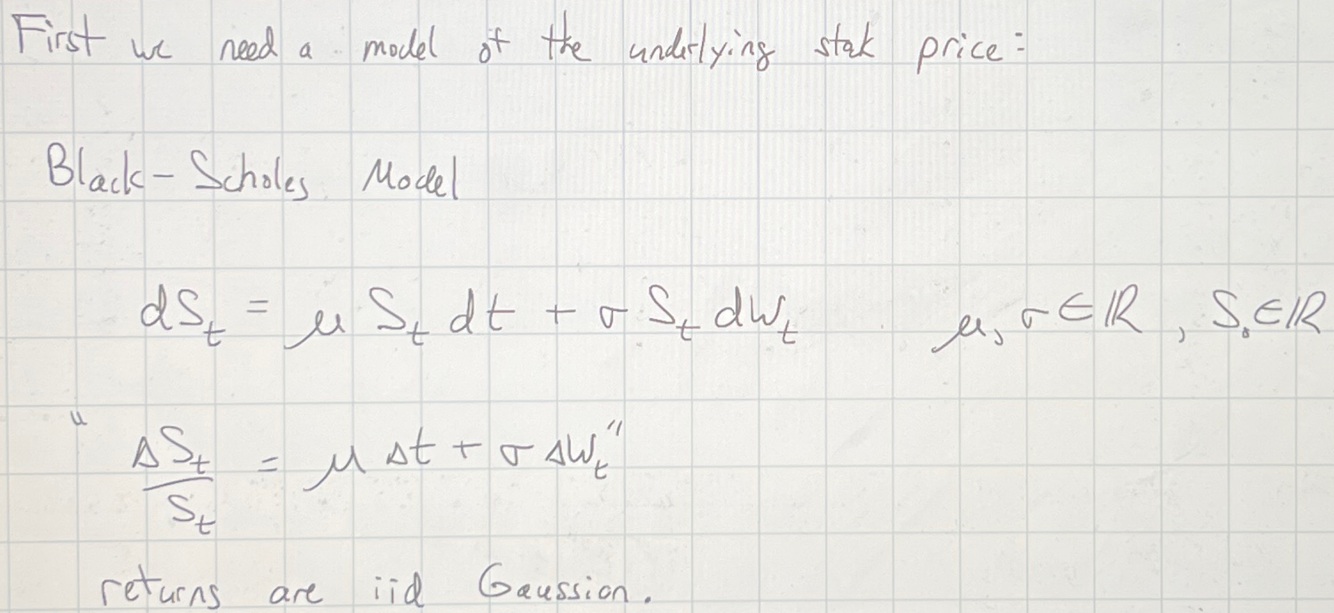 First we need a model of the underlying stok price:
Black-Scholes Model
dS_t = μ S_t dt + σ S_t dW_t    μ, σ ∈ ℝ, S_0 ∈ ℝ
" ΔS_t / S_t = μ Δt + σ ΔW_t "
returns are iid Gaussion.